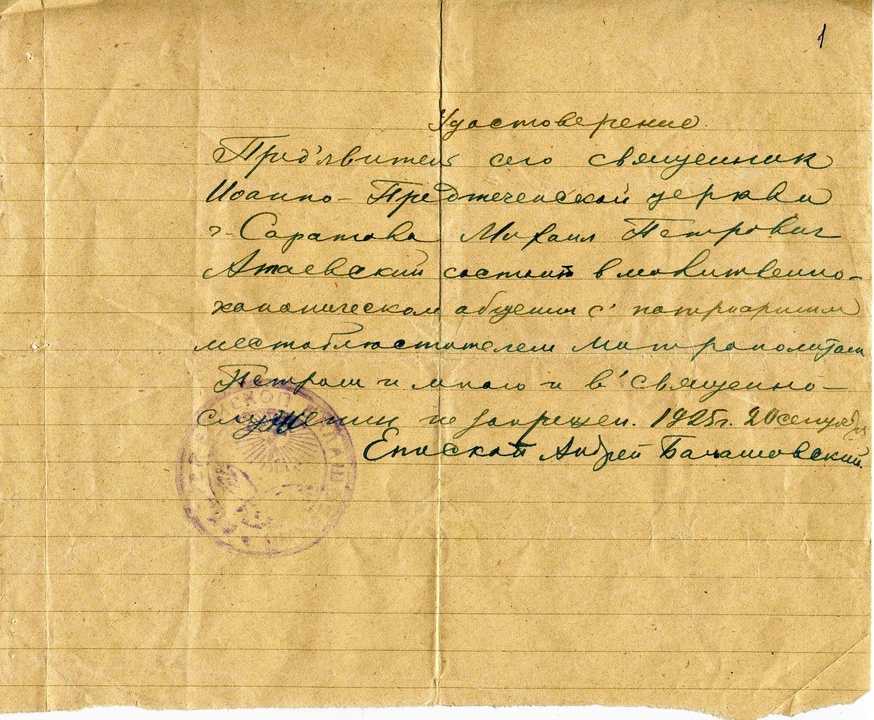 1
Удостоверение.
Пред'явитель сего священник
Иоанно-Предтеченской церкви
г. Саратова Михаил Петрович
Атаевский состоит в молитвенно-
каноническом общении с патриаршим
местоблюстителем Митрополитом
Петром и мною и в священно-
служении не запрещен. 1925 г. 20 сентября
Епископ Андрей Балашовский.